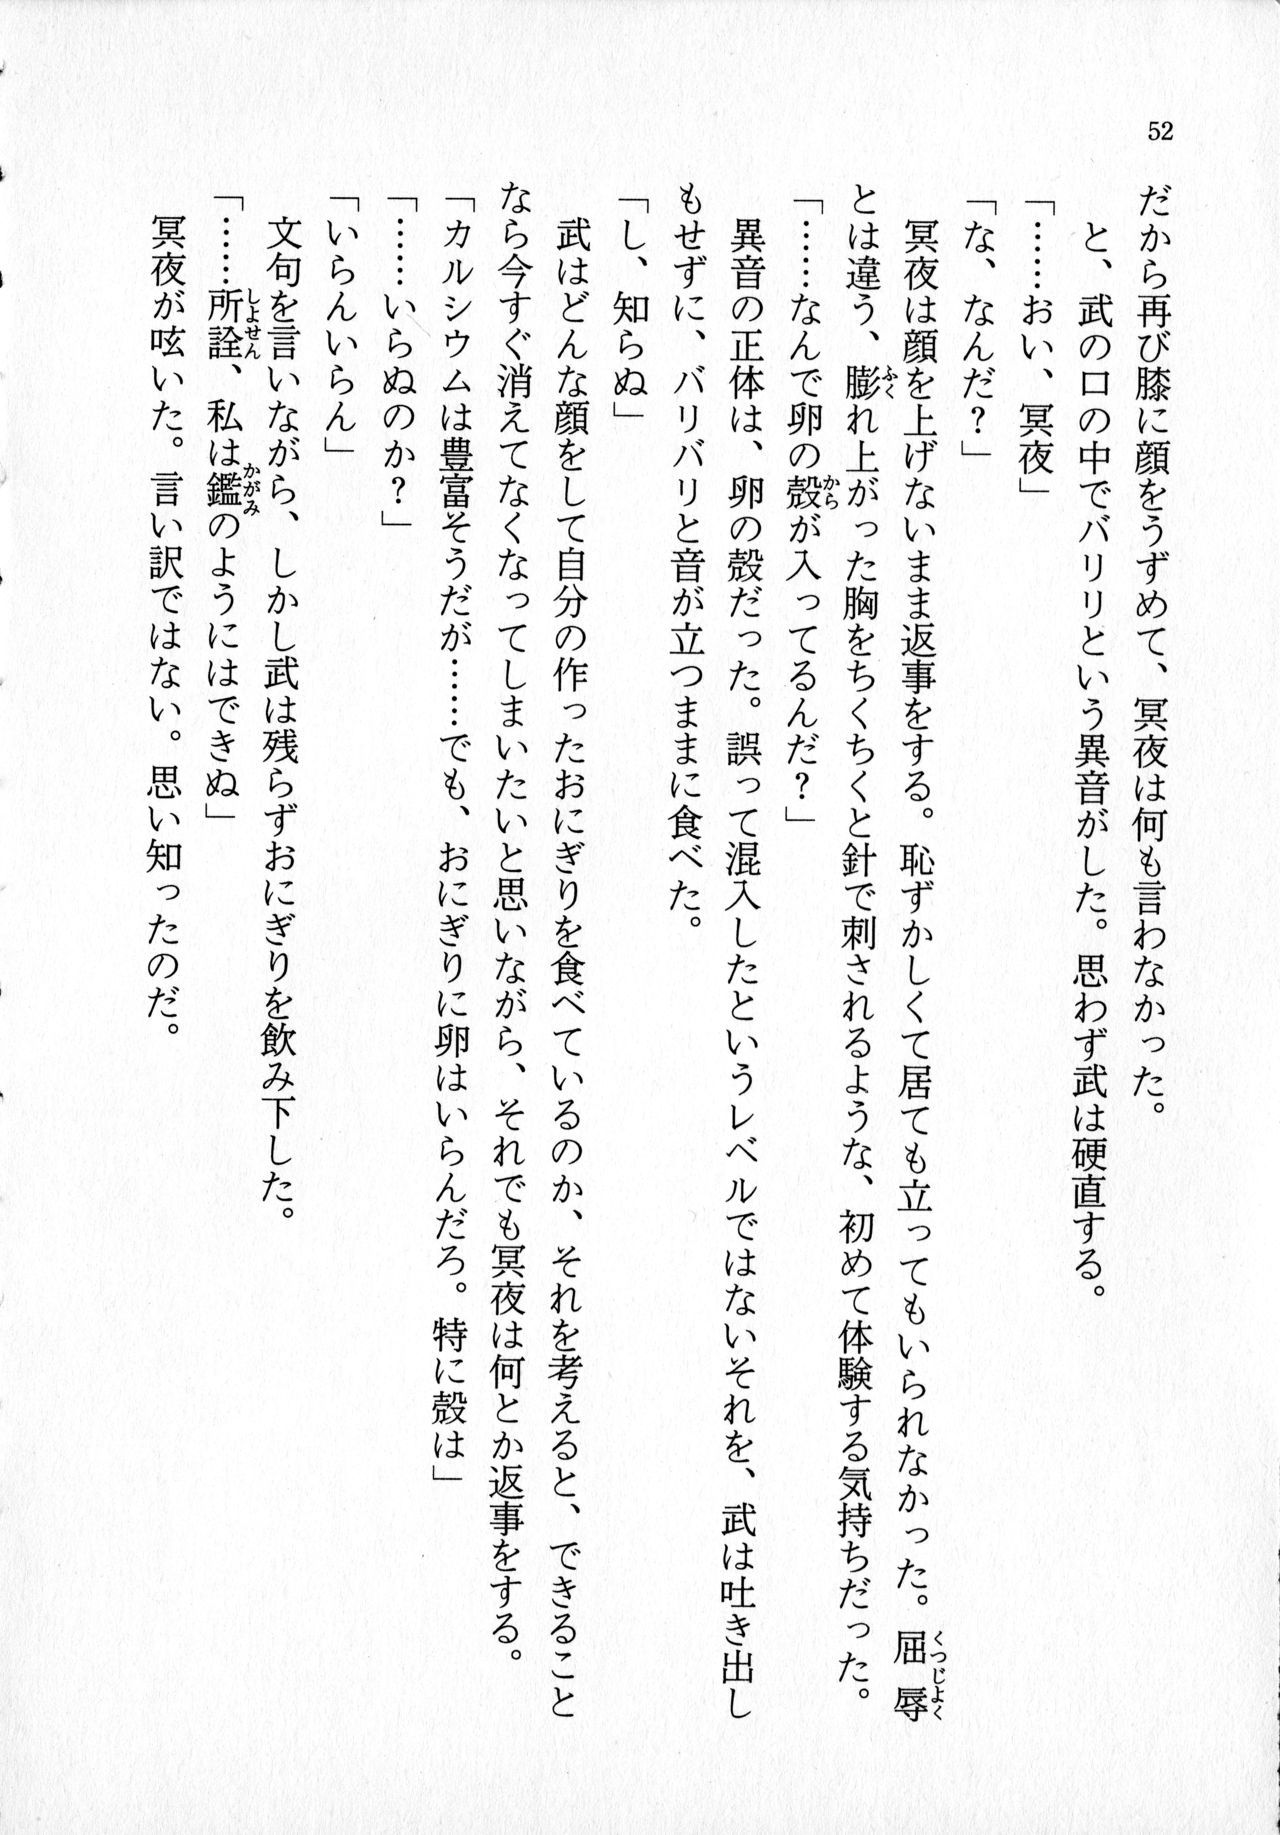 52
だから再び膝に顔をうずめて、冥夜は何も言わなかった。
と、武の口の中でバリリという異音がした。思わず武は硬直する。
「……おい、冥夜」
「な、なんだ？」
冥夜は顔を上げないまま返事をする。恥ずかしくて居ても立ってもいられなかった。屈辱
とは違う、膨れ上がった胸をちくちくと針で刺されるような、初めて体験する気持ちだった。
「……なんで卵の殻が入ってるんだ？」
異音の正体は、卵の殻だった。誤って混入したというレベルではないそれを、武は吐き出し
もせずに、バリバリと音が立つままに食べた。
「し、知らぬ」
武はどんな顔をして自分の作ったおにぎりを食べているのか、それを考えると、できること
なら今すぐ消えてなくなってしまいたいと思いながら、それでも冥夜は何とか返事をする。
「カルシウムは豊富そうだが……でも、おにぎりに卵はいらんだろ。特に殻は」
「……いらぬのか？」
「いらんいらん」
文句を言いながら、しかし武は残らずおにぎりを飲み下した。
「……所詮、私は鑑のようにはできぬ」
冥夜が呟いた。言い訳ではない。思い知ったのだ。